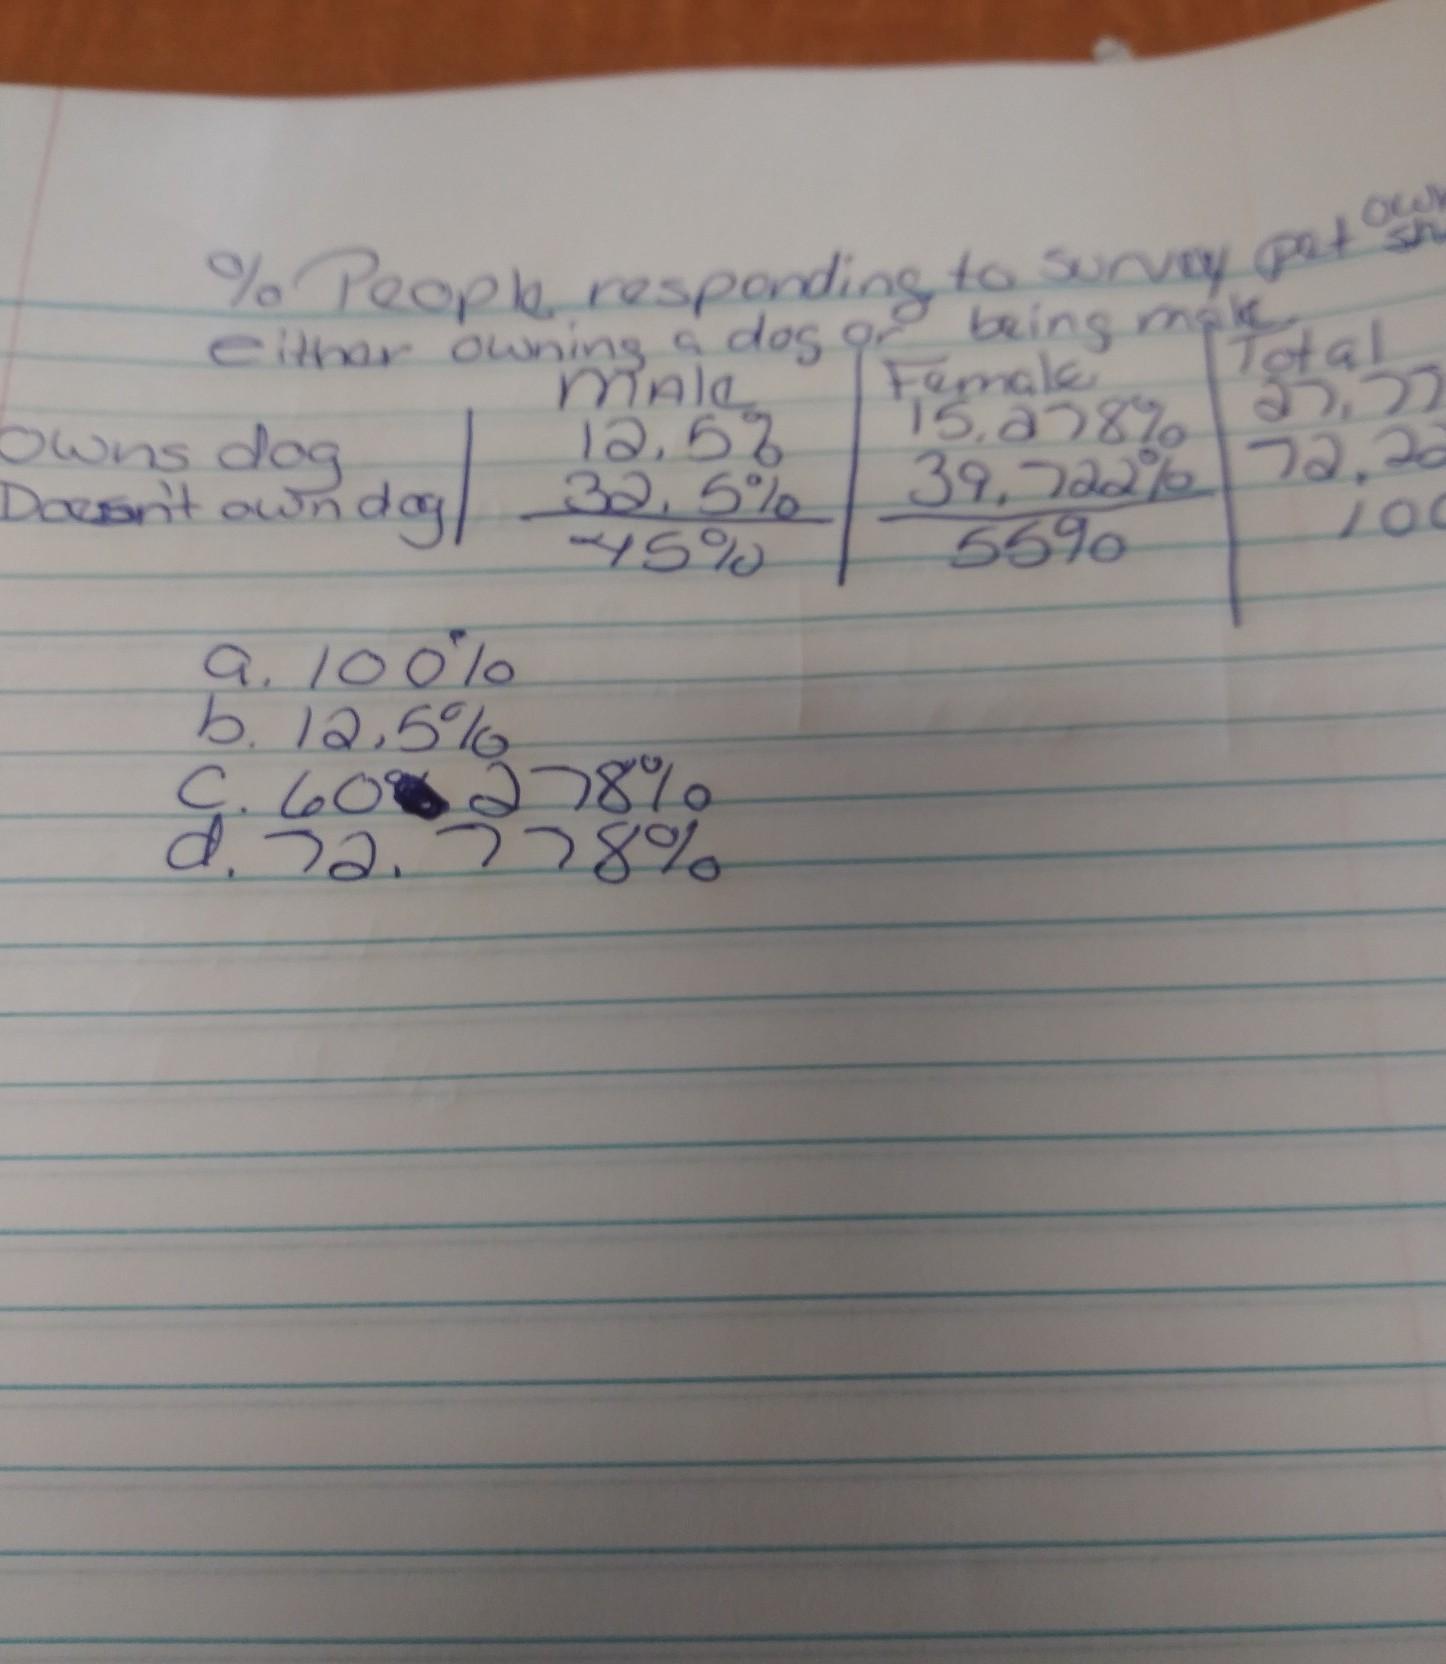 % People responding to survey pet own
either owning a dog or being male
Male Female Total
owns dog 12.5% 15.278% 27.77
Doesn't own dog 32.5% 39.722% 72.22
45% 55% 100
a. 100%
b. 12.5%
c. 60. 278%
d. 72.778%